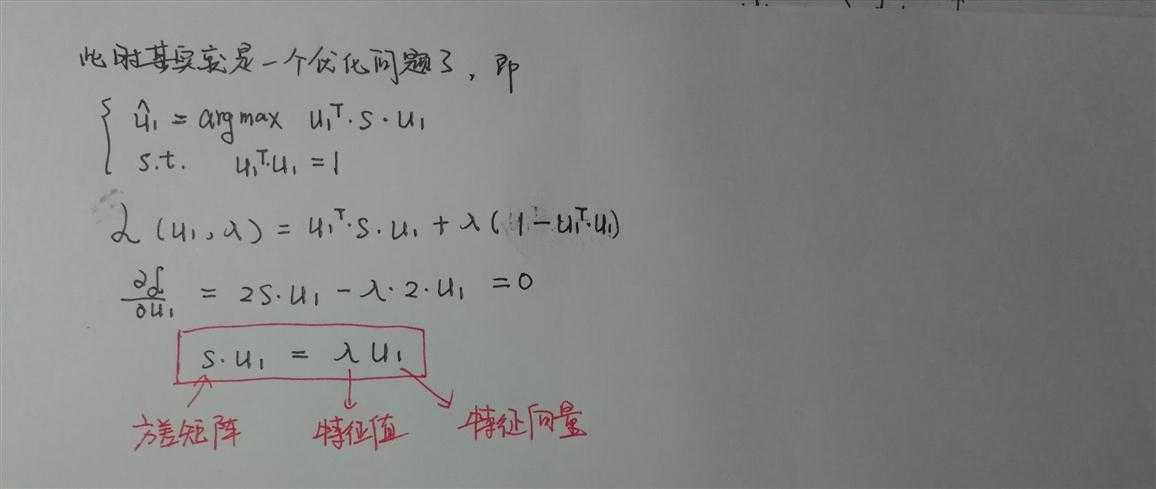 此时其实就是一个优化问题了，即
û₁ = argmax u₁ᵀ·S·u₁
s.t. u₁ᵀ·u₁ = 1
L(u₁, λ) = u₁ᵀ·S·u₁ + λ(1-u₁ᵀ·u₁)
∂L/∂u₁ = 2S·u₁ - λ·2·u₁ = 0
S·u₁ = λu₁
方差矩阵 特征值 特征向量